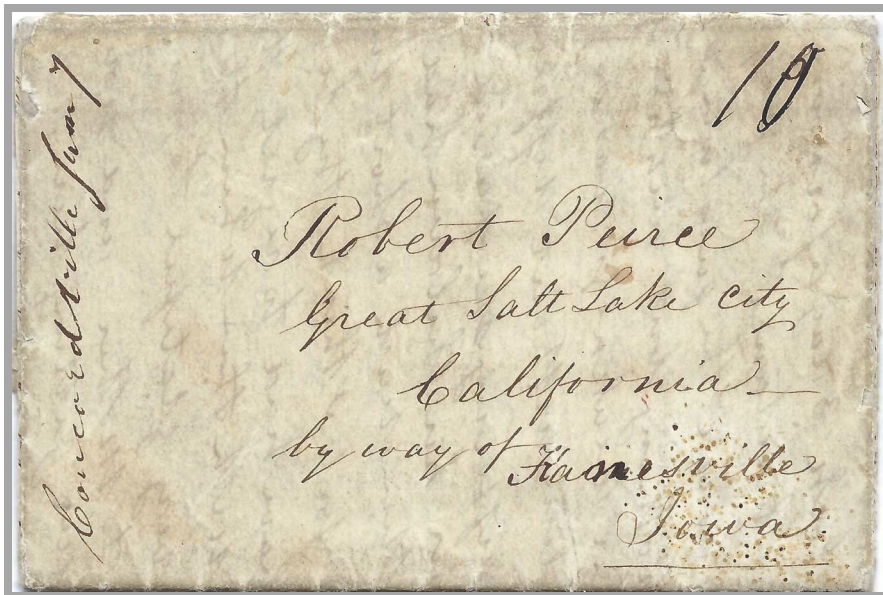 Concordville Jany 7
10
Robert Peirce
Great Salt Lake city
California
by way of Kanesville
Iowa